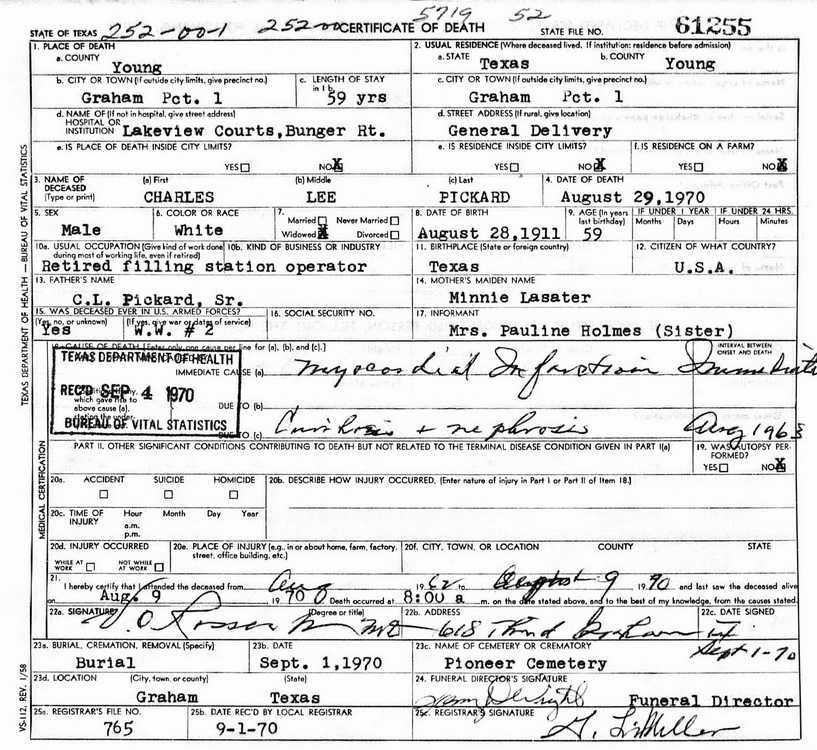 5719 52
STATE OF TEXAS 252-00-1 252-00 CERTIFICATE OF DEATH STATE FILE NO. 61255
1. PLACE OF DEATH
a. COUNTY
Young
2. USUAL RESIDENCE (Where deceased lived. If institution: residence before admission)
a. STATE b. COUNTY
Texas Young
b. CITY OR TOWN (If outside city limits, give precinct no.)
Graham Pct. 1
c. LENGTH OF STAY
in 1 b.
59 yrs
c. CITY OR TOWN (If outside city limits, give precinct no.)
Graham Pct. 1
d. NAME OF (If not in hospital, give street address)
HOSPITAL OR
INSTITUTION Lakeview Courts, Bunger Rt.
d. STREET ADDRESS (If rural, give location)
General Delivery
e. IS PLACE OF DEATH INSIDE CITY LIMITS?
YES NO X
e. IS RESIDENCE INSIDE CITY LIMITS?
YES NO X
f. IS RESIDENCE ON A FARM?
YES NO X
3. NAME OF
DECEASED
(Type or print)
(a) First (b) Middle (c) Last
CHARLES LEE PICKARD
4. DATE OF DEATH
August 29, 1970
5. SEX
Male
6. COLOR OR RACE
White
7.
Married Never Married
Widowed X Divorced
8. DATE OF BIRTH
August 28, 1911
9. AGE (In years
last birthday)
59
IF UNDER 1 YEAR
Months Days
IF UNDER 24 HRS.
Hours Minutes
10a. USUAL OCCUPATION (Give kind of work done
during most of working life, even if retired)
10b. KIND OF BUSINESS OR INDUSTRY
Retired filling station operator
11. BIRTHPLACE (State or foreign country)
Texas
12. CITIZEN OF WHAT COUNTRY?
U.S.A.
13. FATHER'S NAME
C.L. Pickard, Sr.
14. MOTHER'S MAIDEN NAME
Minnie Lasater
15. WAS DECEASED EVER IN U.S. ARMED FORCES?
(Yes, no, or unknown) (If yes, give war or dates of service)
Yes W.W. # 2
16. SOCIAL SECURITY NO.
17. INFORMANT
Mrs. Pauline Holmes (Sister)
CAUSE OF DEATH [Enter only one cause per line for (a), (b), and (c).]
INTERVAL BETWEEN
ONSET AND DEATH
IMMEDIATE CAUSE (a) Myocardial Infarction Immediate
which gave rise to
above cause (a),
stating the under-
DUE TO (b)
DUE TO (c) Cirrhosis + nephrosis Aug 1968
TEXAS DEPARTMENT OF HEALTH
REC'D SEP 4 1970
BUREAU OF VITAL STATISTICS
PART II. OTHER SIGNIFICANT CONDITIONS CONTRIBUTING TO DEATH BUT NOT RELATED TO THE TERMINAL DISEASE CONDITION GIVEN IN PART I(a)
19. WAS AUTOPSY PER-
FORMED?
YES NO X
20a. ACCIDENT SUICIDE HOMICIDE
20b. DESCRIBE HOW INJURY OCCURRED. (Enter nature of injury in Part I or Part II of Item 18.)
20c. TIME OF
INJURY
Hour Month Day Year
a.m.
p.m.
20d. INJURY OCCURRED
WHILE AT
WORK
NOT WHILE
AT WORK
20e. PLACE OF INJURY (e.g., in or about home, farm, factory,
street, office building, etc.)
20f. CITY, TOWN, OR LOCATION COUNTY STATE
21.
I hereby certify that I attended the deceased from Aug 1962 to August 9 1970 and last saw the deceased alive
on Aug. 9 1970 Death occurred at 8:00 a m. on the date stated above, and to the best of my knowledge, from the causes stated.
22a. SIGNATURE (Degree or title)
22b. ADDRESS
618 Third Graham
22c. DATE SIGNED
Sept 1-70
23a. BURIAL, CREMATION, REMOVAL (Specify)
Burial
23b. DATE
Sept. 1, 1970
23c. NAME OF CEMETERY OR CREMATORY
Pioneer Cemetery
23d. LOCATION (City, town, or county) (State)
Graham Texas
24. FUNERAL DIRECTOR'S SIGNATURE
Funeral Director
25a. REGISTRAR'S FILE NO.
765
25b. DATE REC'D BY LOCAL REGISTRAR
9-1-70
25c. REGISTRAR'S SIGNATURE
TEXAS DEPARTMENT OF HEALTH — BUREAU OF VITAL STATISTICS
MEDICAL CERTIFICATION
VS-112, REV. 1/58